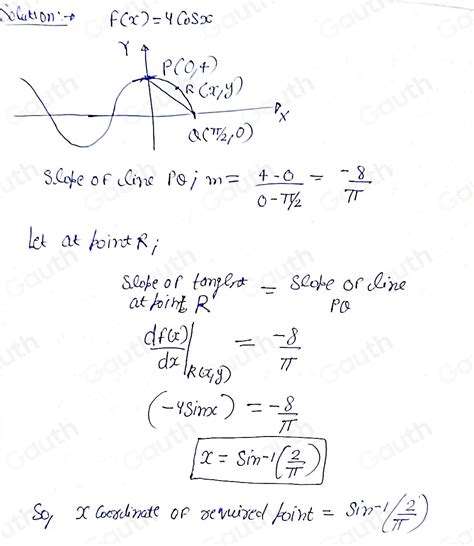 Solution:→ f(x) = 4 Cosx
Y
P(0,4)
R(x,y)
X
Q(π/2,0)
Slope of line PQ; m = 4-0 / 0-π/2 = -8/π
Let at point R;
Slope of tangent at point R = Slope of line PQ
df(x)/dx |R(x,y) = -8/π
(-4Sinx) = -8/π
x = Sin-1(2/π)
So, x coordinate of required point = Sin-1(2/π)